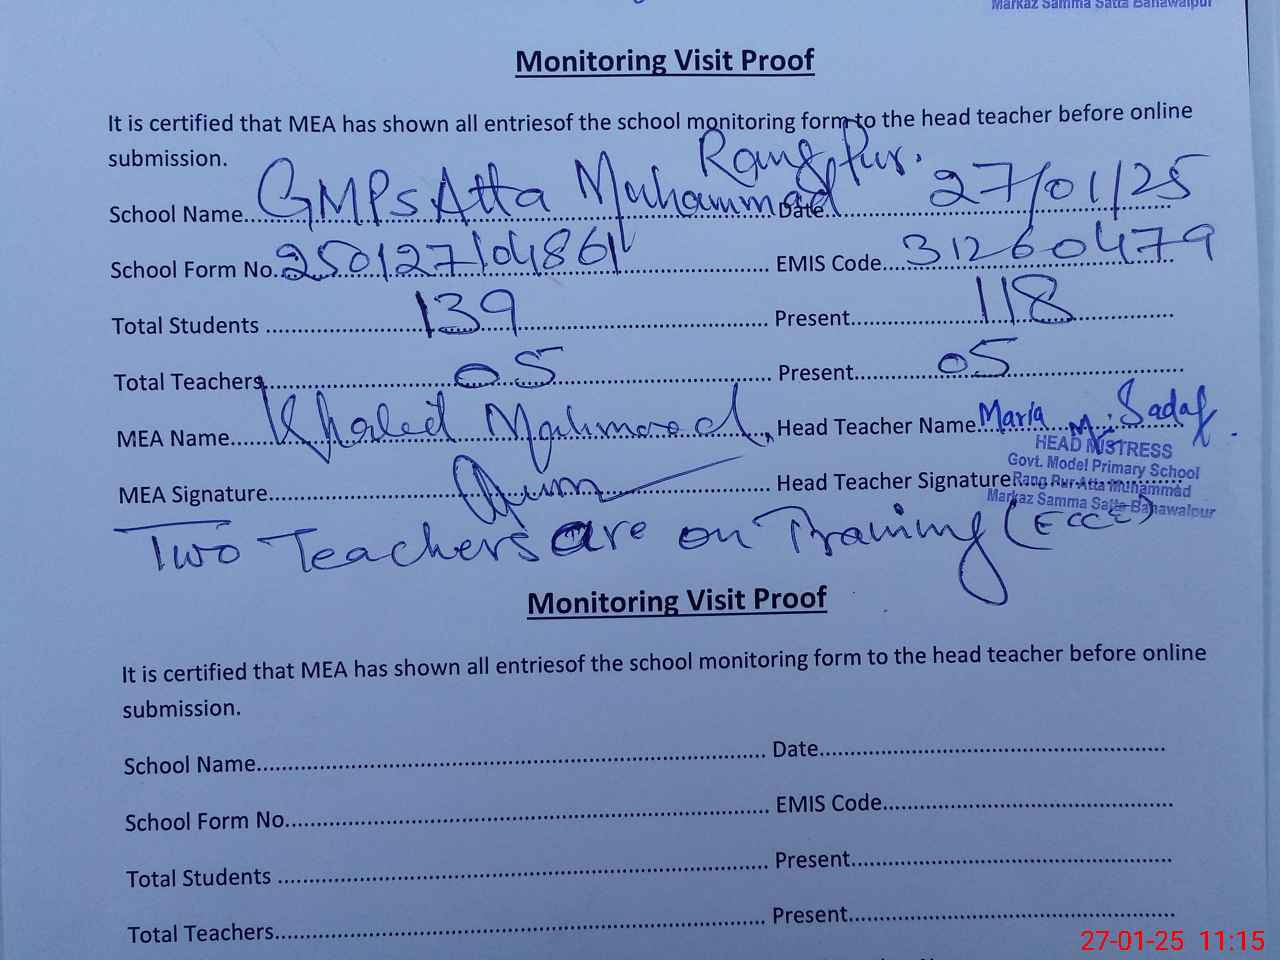 Markaz Samma Satta Bahawalpur
Monitoring Visit Proof
It is certified that MEA has shown all entriesof the school monitoring form to the head teacher before online
submission.
School Name GMPS Atta Muhammad Rang Pur. Date 27/01/25
School Form No. 250127104861 EMIS Code 31260479
Total Students 139 Present 118
Total Teachers 05 Present 05
MEA Name Khalid Mahmood Head Teacher Name Maria Sadaf
HEAD MISTRESS
Govt. Model Primary School
MEA Signature Head Teacher Signature
Rang Pur Atta Muhammad
Markaz Samma Satta Bahawalpur
Two Teachers are on Training (ECCE)
Monitoring Visit Proof
It is certified that MEA has shown all entriesof the school monitoring form to the head teacher before online
submission.
School Name Date
School Form No. EMIS Code
Total Students Present
Total Teachers Present
27-01-25 11:15